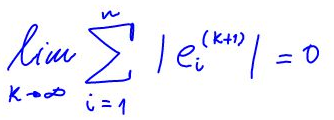 lim_{k→∞} ∑_{i=1}^{n} |e_i^{(k+1)}| = 0